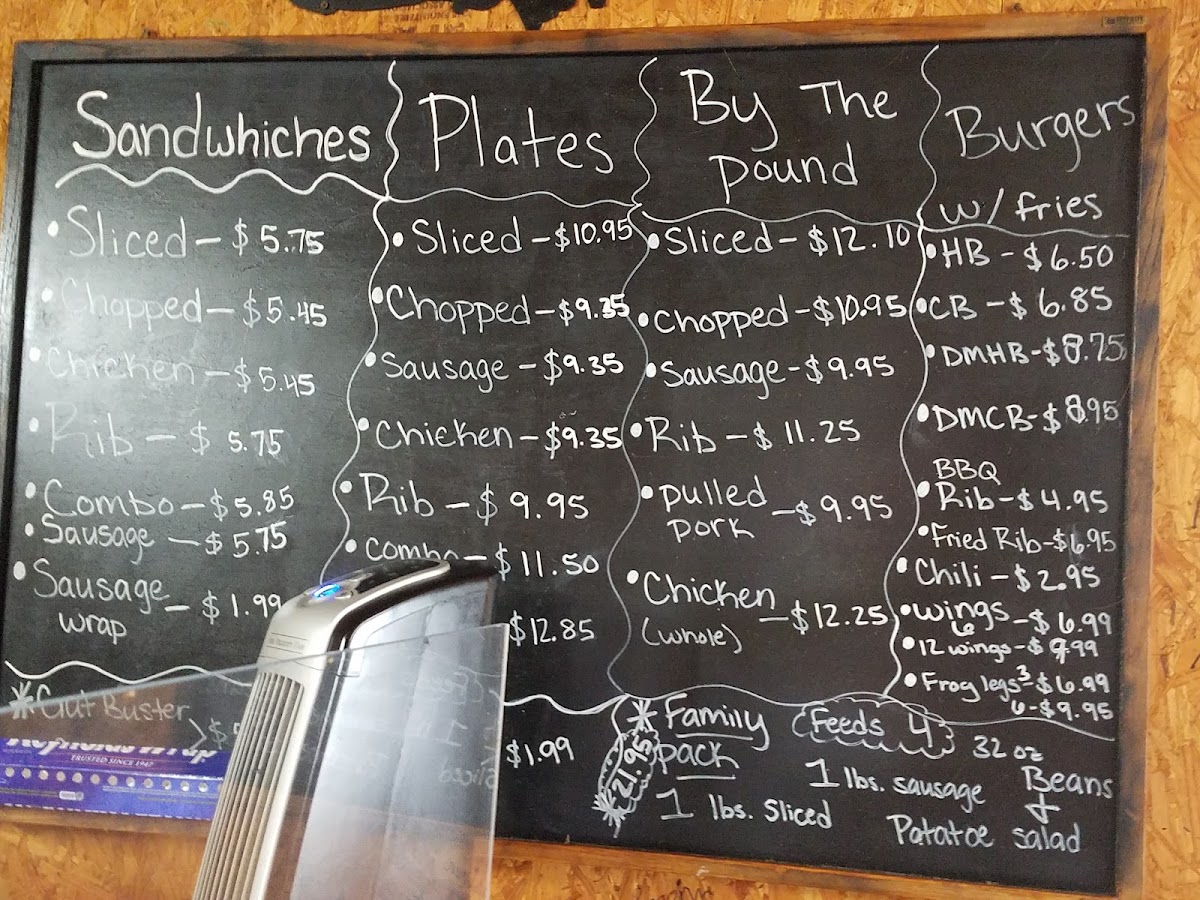 Sandwhiches
• Sliced - $5.75
• Chopped - $5.45
• Chicken - $5.45
• Rib - $5.75
• Combo - $5.85
• Sausage - $5.75
• Sausage
wrap - $1.99
* Gut Buster
Reynolds Wrap
TRUSTED SINCE 1947
Plates
• Sliced - $10.95
• Chopped - $9.35
• Sausage - $9.35
• Chicken - $9.35
• Rib - $9.95
• Combo - $11.50
$12.85
$1.99
By The
pound
• Sliced - $12.10
• Chopped - $10.95
• Sausage - $9.95
• Rib - $11.25
• pulled
pork - $9.95
• Chicken
(whole) - $12.25
Burgers
w/ fries
• HB - $6.50
• CB - $6.85
• DMHB - $8.75
• DMCB - $8.95
BBQ
• Rib - $4.95
• Fried Rib - $6.95
• Chili - $2.95
• wings
6 - $6.99
• 12 wings - $9.99
• Frog legs 3 - $6.99
6 - $9.95
* Family
pack
21.95
Feeds 4
1 lbs. Sliced
1 lbs. sausage
32 oz
Beans
+
Patatoe salad